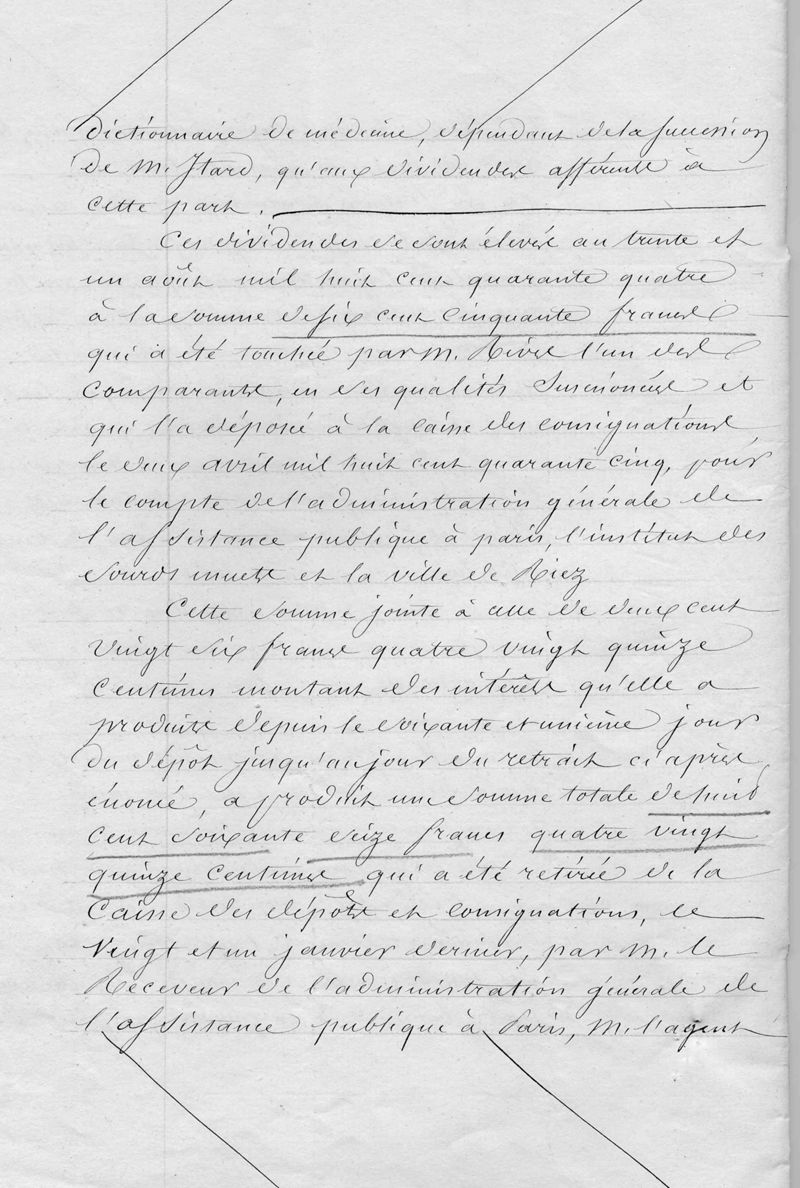 dictionnaire de médecine, dépendant de la succession
de M. Itard, qu'aux dividendes afférents à
cette part.
Ces dividendes se sont élevés au trente et
un août mil huit cent quarante quatre
à la somme de six cent cinquante francs
qui a été touchée par M. Rives l'un des
comparants, en ses qualités susénoncées et
qui l'a déposée à la caisse des consignations
le deux avril mil huit cent quarante cinq, pour
le compte de l'administration générale de
l'assistance publique à paris, l'institut des
sourds muets et la ville de Riez
Cette somme jointe à celle de deux cent
vingt six francs quatre vingt quinze
centimes montant des intérêts qu'elle a
produits depuis le soixante et unième jour
du dépôt jusqu'au jour du retrait ci après
énoncé, a produit une somme totale de huit
cent soixante seize francs quatre vingt
quinze centimes qui a été retirée de la
Caisse des dépôts et consignations, le
vingt et un janvier dernier, par M. le
Receveur de l'administration générale de
l'assistance publique à Paris, M. l'agent